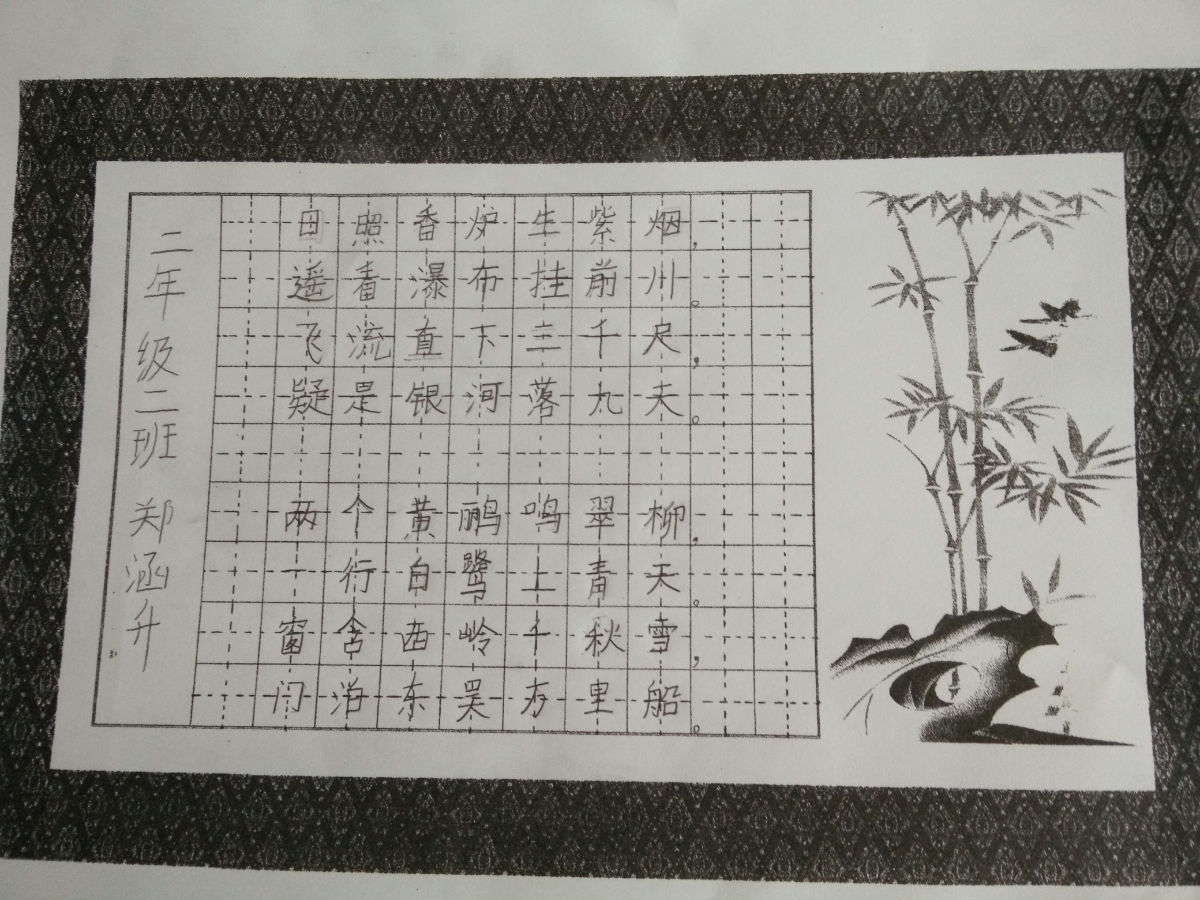 日照香炉生紫烟，
遥看瀑布挂前川。
飞流直下三千尺，
疑是银河落九天。
两个黄鹂鸣翠柳，
一行白鹭上青天。
窗含西岭千秋雪，
门泊东吴万里船。
二年级二班 郑涵升